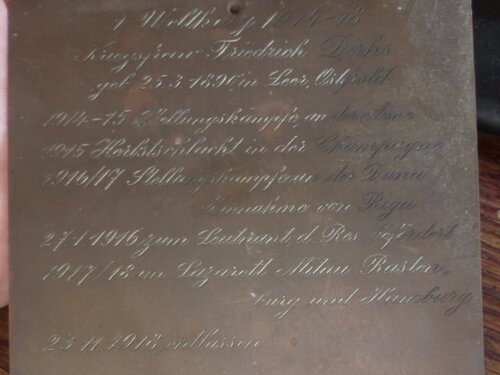 1 Weltkrieg 1914-18
Kriegsfreiw Friedrich Dirks
geb 25.3.1896, in Leer, Ostfrsld
1914-15 Stellungskämpfe, an der Aisne
1915 Herbstschlacht in der Champagne
1916/17 Stellungskämpfe an der Düna
Einnahme von Riga
27.1.1916 zum Leutnant, d. Res. befördert
1917/18 im Lazarett Mitau Rasten,
burg und Hamburg
23.11.1918 entlassen